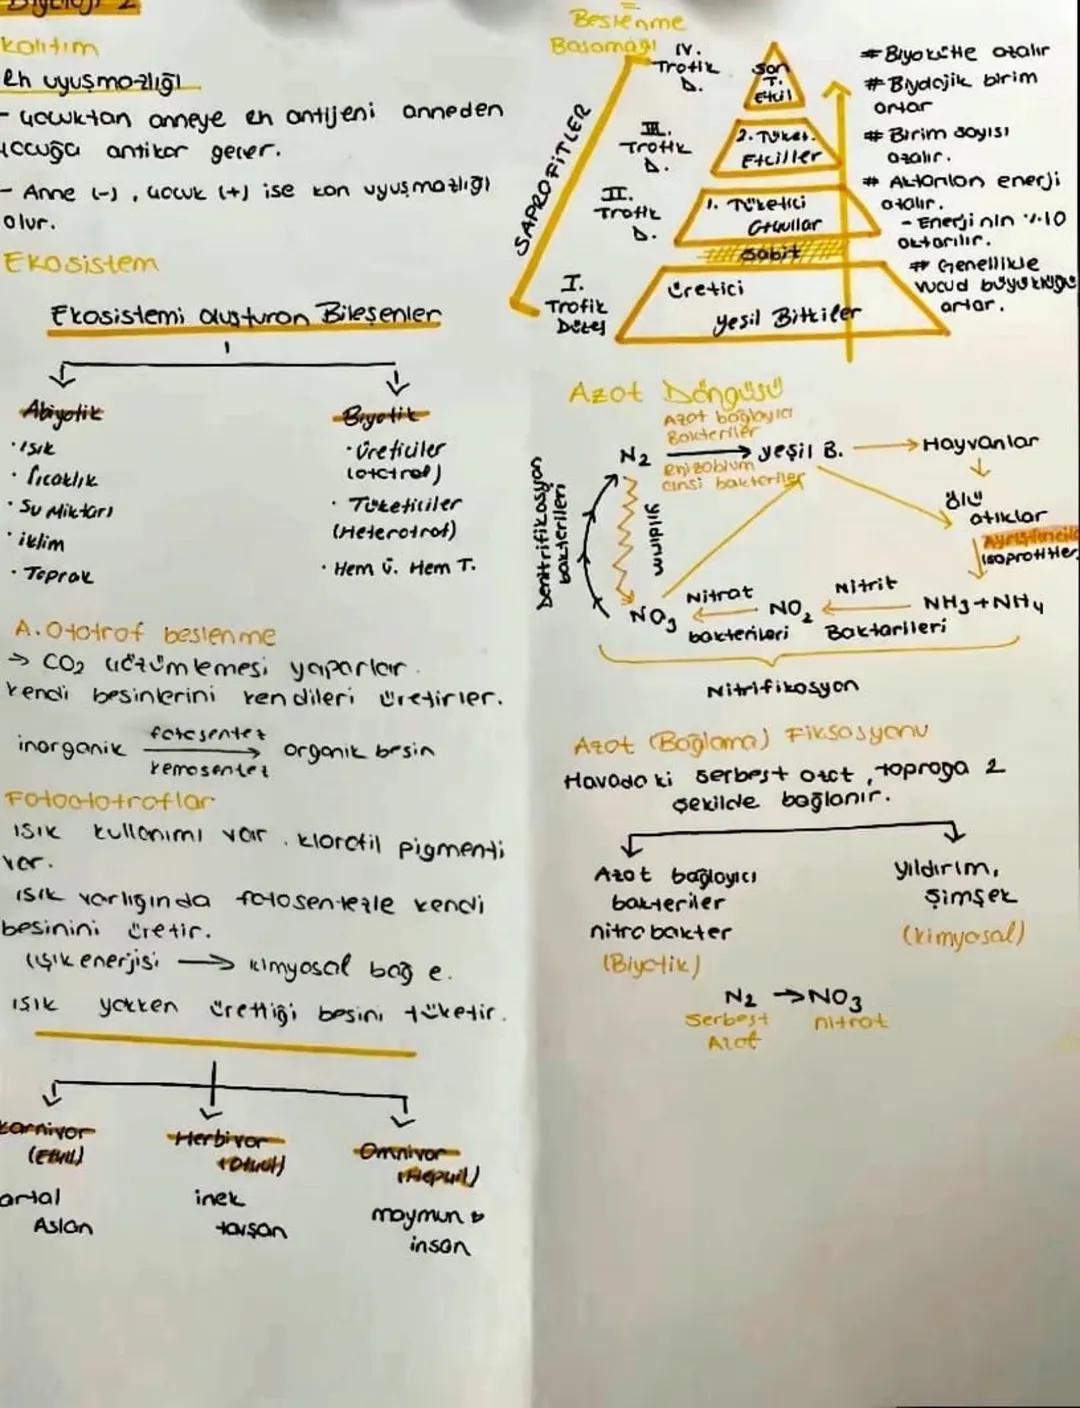 Biyoloji 2
kalıtım
Rh uyuşmazlığı
- çocuktan anneye Rh antijeni anneden
çocuğa antikor geçer.
- Anne (-), çocuk (+) ise kan uyuşmazlığı
olur.
Ekosistem
Ekosistemi oluşturan Bileşenler
Abiyotik
· ışık
· Sıcaklık
· Su Miktarı
· iklim
· Toprak
Biyotik
· Üreticiler
(ototrof)
· Tüketiciler
(Heterotrof)
· Hem Ü. Hem T.
A. Ototrof beslenme
→ CO2 özümlemesi yaparlar.
kendi besinlerini kendileri üretirler.
inorganik fotosentez kemosentez → organik besin
Fotoototroflar
ışık kullanımı var. klorofil pigmenti
var.
ışık varlığında fotosentezle kendi
besinini üretir.
(ışık enerjisi → kimyasal bağ e.
ışık yokken ürettiği besini tüketir.
karnivor
(Etçil)
artal
Aslan
Herbivor
(Otçul)
inek
tavşan
Omnivor
(Hepçil)
maymun
insan
Beslenme
Basamağı
SAPROFİTLER
IV.
Trofik
D.
Son
T.
Etçil
III.
Trofik
D.
2. Tüket.
Etçiller
II.
Trofik
D.
1. Tüketici
Otçullar
Sabit
I.
Trofik
Düzey
üretici
yeşil Bitkiler
# Biyokütle azalır
# Biyolojik birim
artar
# Birim sayısı
azalır.
# Aktarılan enerji
azalır.
- Enerjinin %10
aktarılır.
# Genellikle
vücud büyüklüğü
artar.
Azot Döngüsü
Azot bağlayıcı
Bakteriler
N2 → yeşil B. → Hayvanlar
enizobium
cinsi bakteriler
Denitrifikasyon
bakterileri
yıldırım
ölü
atıklar
Ayrıştırıcılar
(saprofitler)
NO3 ← Nitrat bakterileri NO2 ← Nitrit Baktarileri NH3+NH4
Nitrifikasyon
Azot (Bağlama) Fiksasyonu
Havadaki serbest azot, toprağa 2
şekilde bağlanır.
Azot bağlayıcı
bakteriler
nitrobakter
(Biyotik)
yıldırım,
şimşek
(kimyasal)
N2 → NO3
Serbest nitrat
Azot